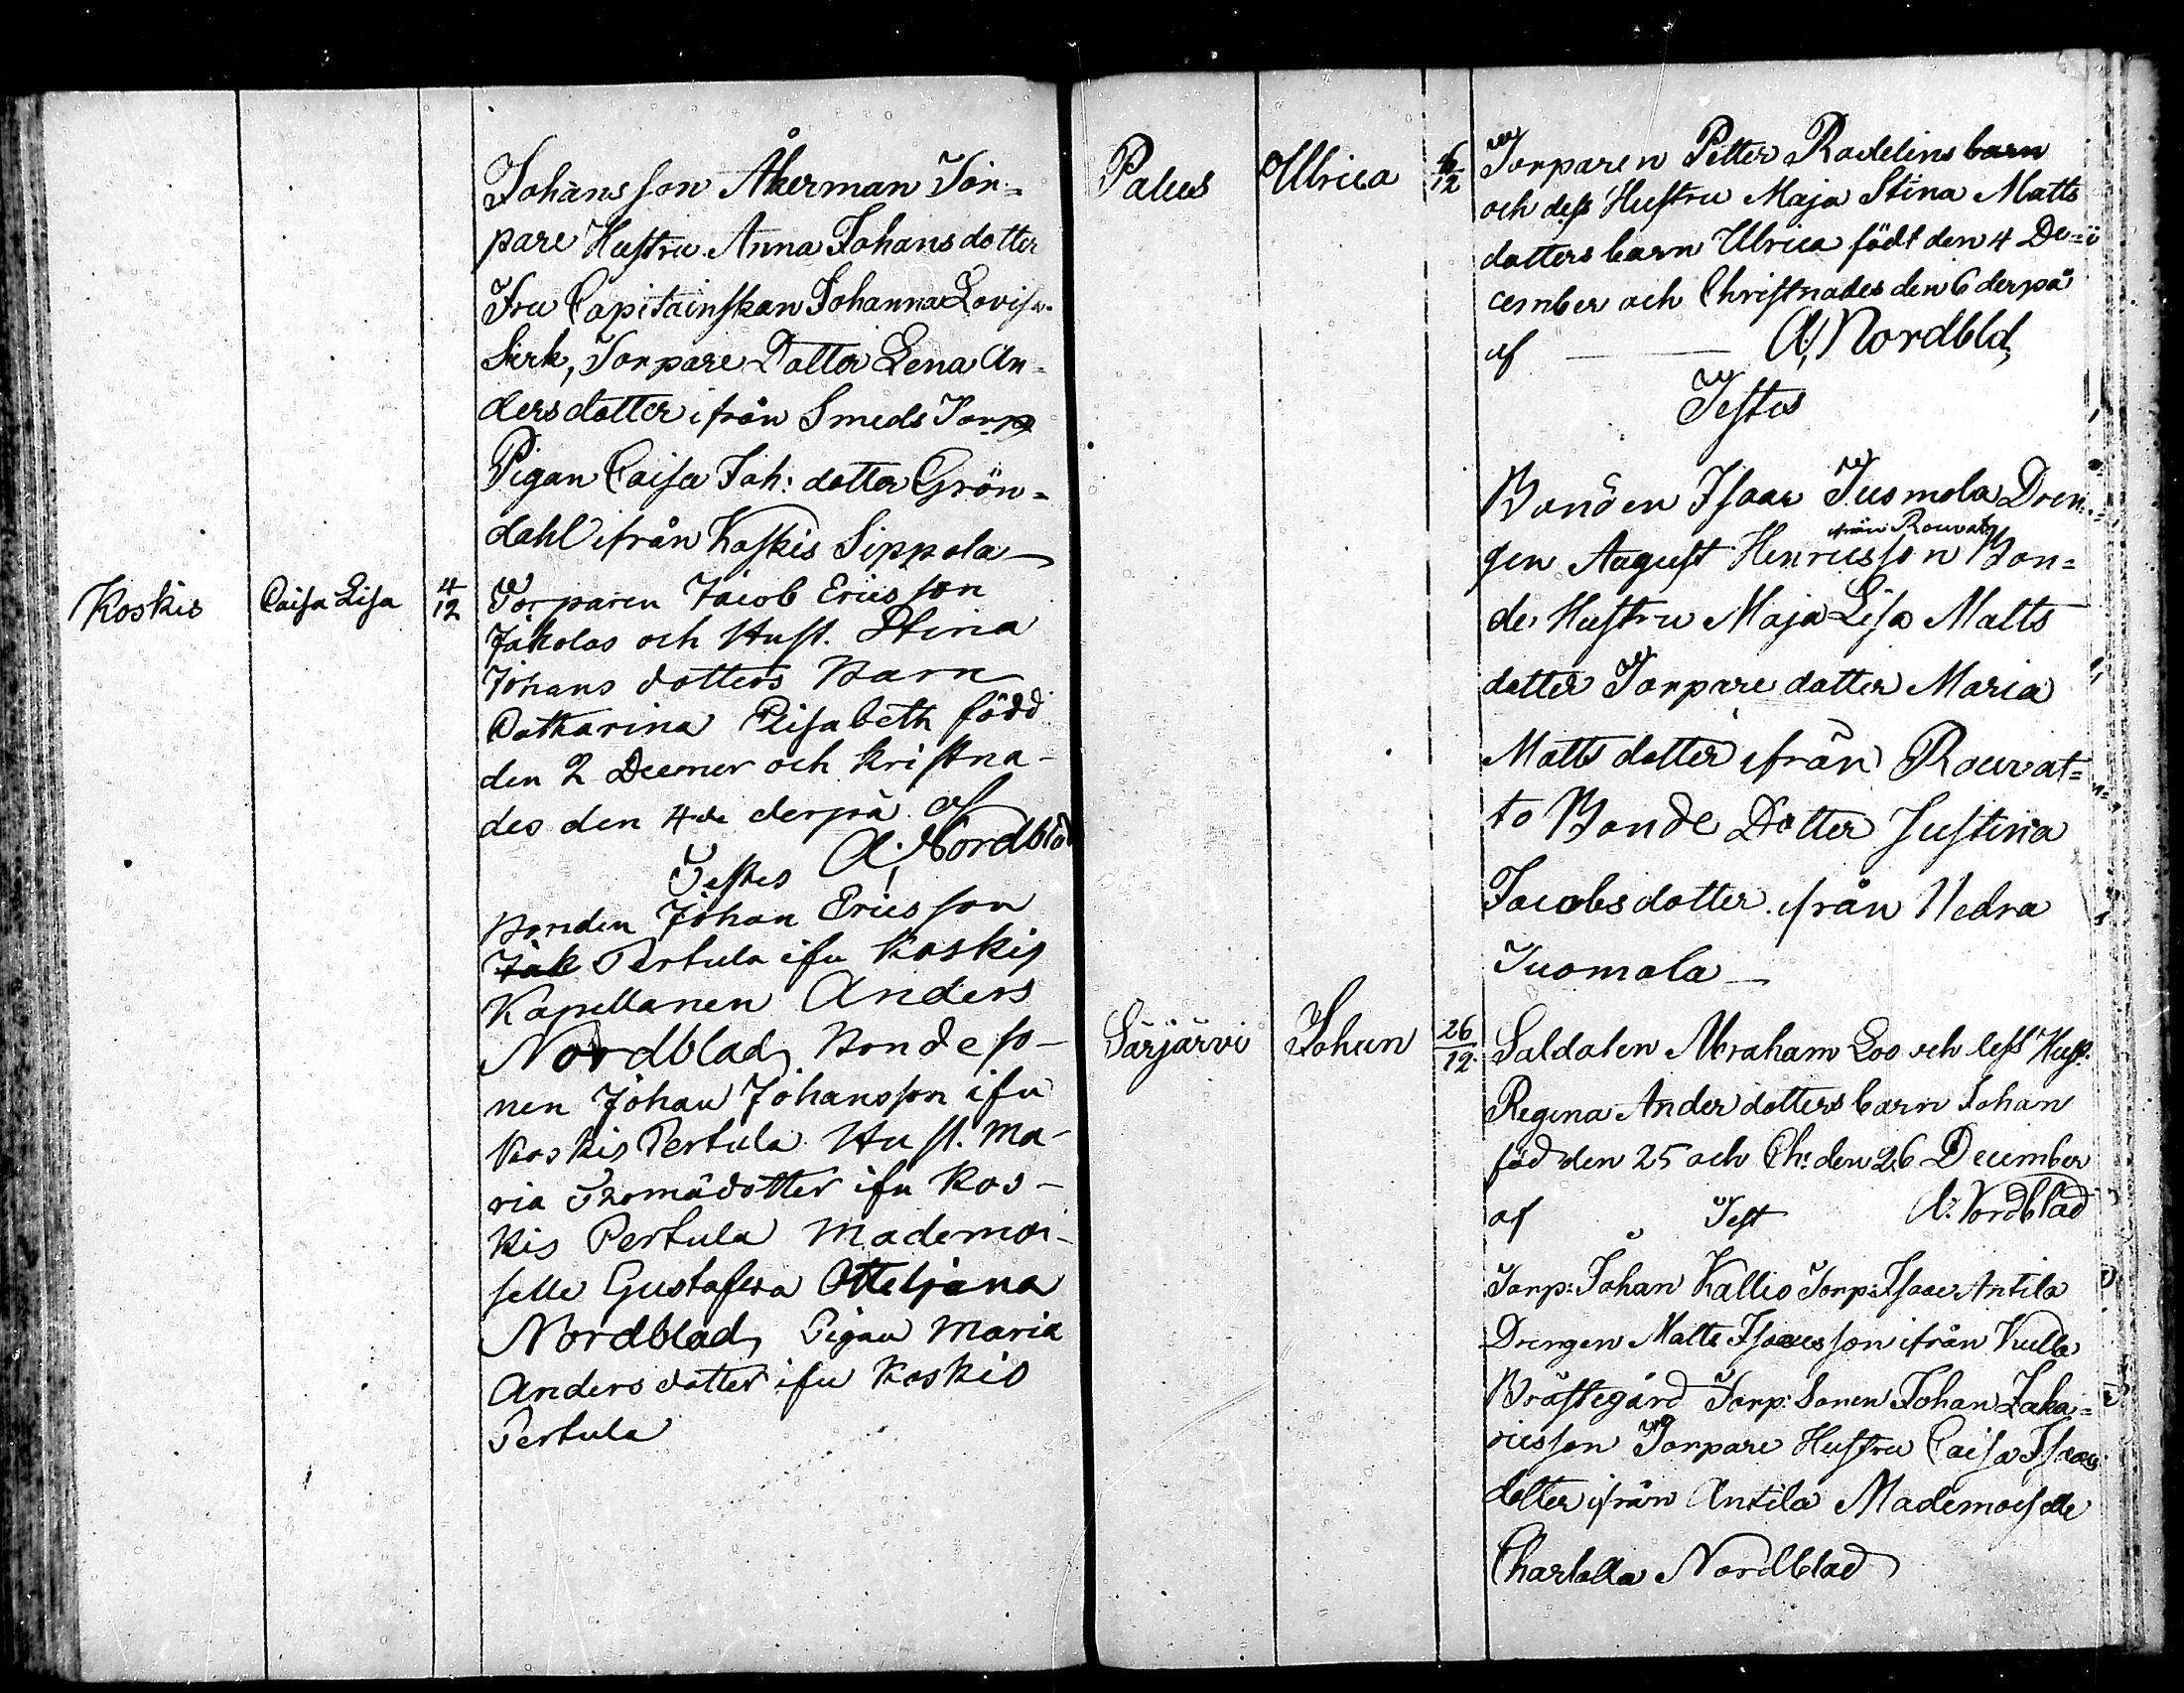 Johansson Åkerman Tor=
pare Hustru Anna Johansdotter
Fru Capitainskan Johanna Lovisa
Sirk, Torpare Dotter Lena An=
dersdotter ifrån Smeds Torp
Pigan Caisa Joh: dotter Grön=
dahl ifrån Koskis Sippola
Koskis Caisa Lisa 4/12 Torparen Jacob Ericsson
Jakolas och Hust. Stina
Johans dotters Barn
Catharina Elisabeth född
den 2 Decemer och kristna-
des den 4de derpå af
Testes A. Nordblad
Bonden Johan Ericsson
Jak Pertula ifrn Koskis
Kapellanen Anders
Nordblad, Bondeso-
nen Johan Johansson ifrn
Koskis Pertula Hust. Ma-
ria Thomädotter ifrn Kos-
kis Pertula Mademoi-
selle Gustafva Otteljana
Nordblad, Pigan Maria
Andersdotter ifrn Koskis
Pertula
Palus Ulrica 6/12 Torparen Petter Rodelins barn
och dess Hustru Maja Stina Matts
dotters barn Ulrica födt den 4 De=
cember och Christnades den 6 derpå
af A. Nordbld,
Testes
Bonden Isaac Tuomola Dren=
från Rouvat
gen August Henricsson Bon=
de Hustru Maja Lisa Matts
dotter Torpare dotter Maria
Matts dotter ifrån Rouvat=
to Bonde Dotter Justina
Jacobsdotter ifrån Nedra
Tuomola
Särjärvi Johan 26/12 Soldaten Abraham Loo och dess Hust.
Regina Anderdotters barn Johan
föd den 25 och Ch: den 26 December
af Test A. Nordblad
Torp: Johan Kallio Torp: Isaac Antila
Drengen Matts Isacsson ifrån Kulla
Bråstegård Torp: Sonen Johan Zaka=
riesson Torpare Hustru Caisa Isaacs
dotter ifrån Antila Mademoiselle
Charlotta Nordblad